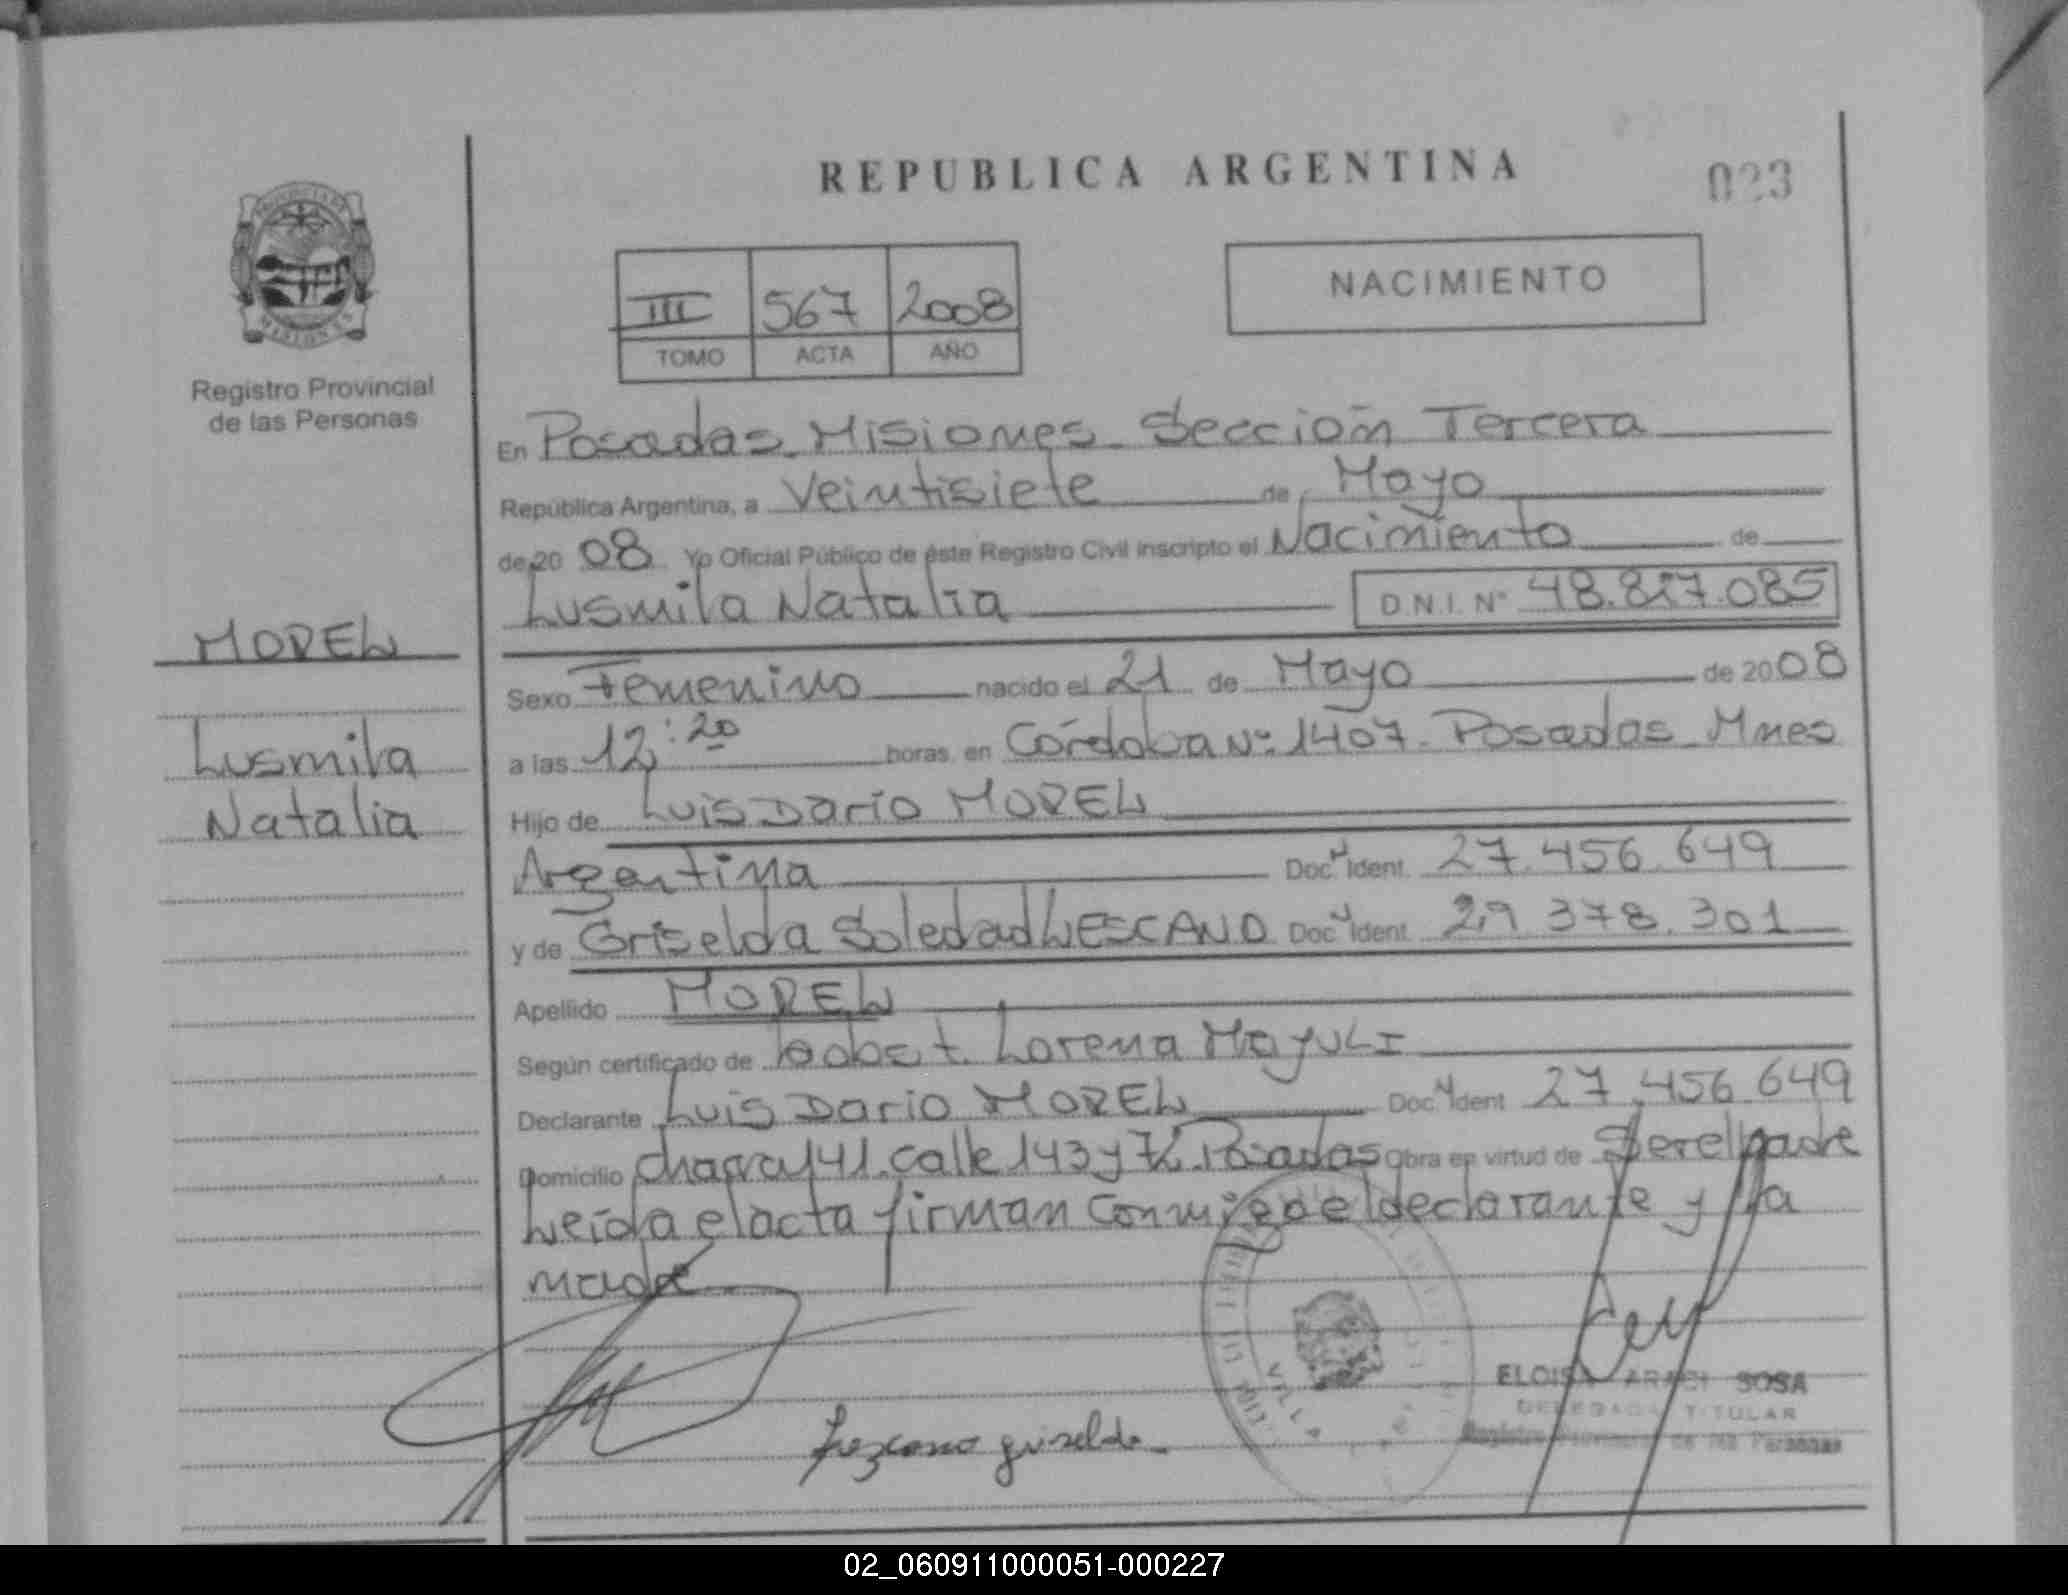 REPUBLICA ARGENTINA
023
NACIMIENTO
III 567 2008
TOMO ACTA AÑO
Registro Provincial
de las Personas
En Posadas Misiones Sección Tercera
República Argentina, a Veintisiete de Mayo
de 20 08 Yo Oficial Público de éste Registro Civil inscripto el Nacimiento de
Lusmila Natalia D.N.I. Nº 48.817.085
MOREL
Lusmila
Natalia
Sexo Femenino nacido el 21 de Mayo de 20 08
a las 12:20 horas en Córdoba Nº 1407. Posadas Mnes
Hijo de Luis Dario MOREL
Argentina Doc. Ident. 27.456.649
y de Griselda Soledad LESCANO Doc. Ident. 29.378.301
Apellido MOREL
Según certificado de Lorena
Declarante Luis Dario MOREL Doc. Ident. 27.456.649
Domicilio chacra 141. calle 143 y Posadas Obra en virtud de Ser el padre
Leída el acta firman conmigo el declarante y la
madre
Lezcano griselda
SOSA
DELEGADA TITULAR
Registro Provincial de las Personas
02_060911000051-000227